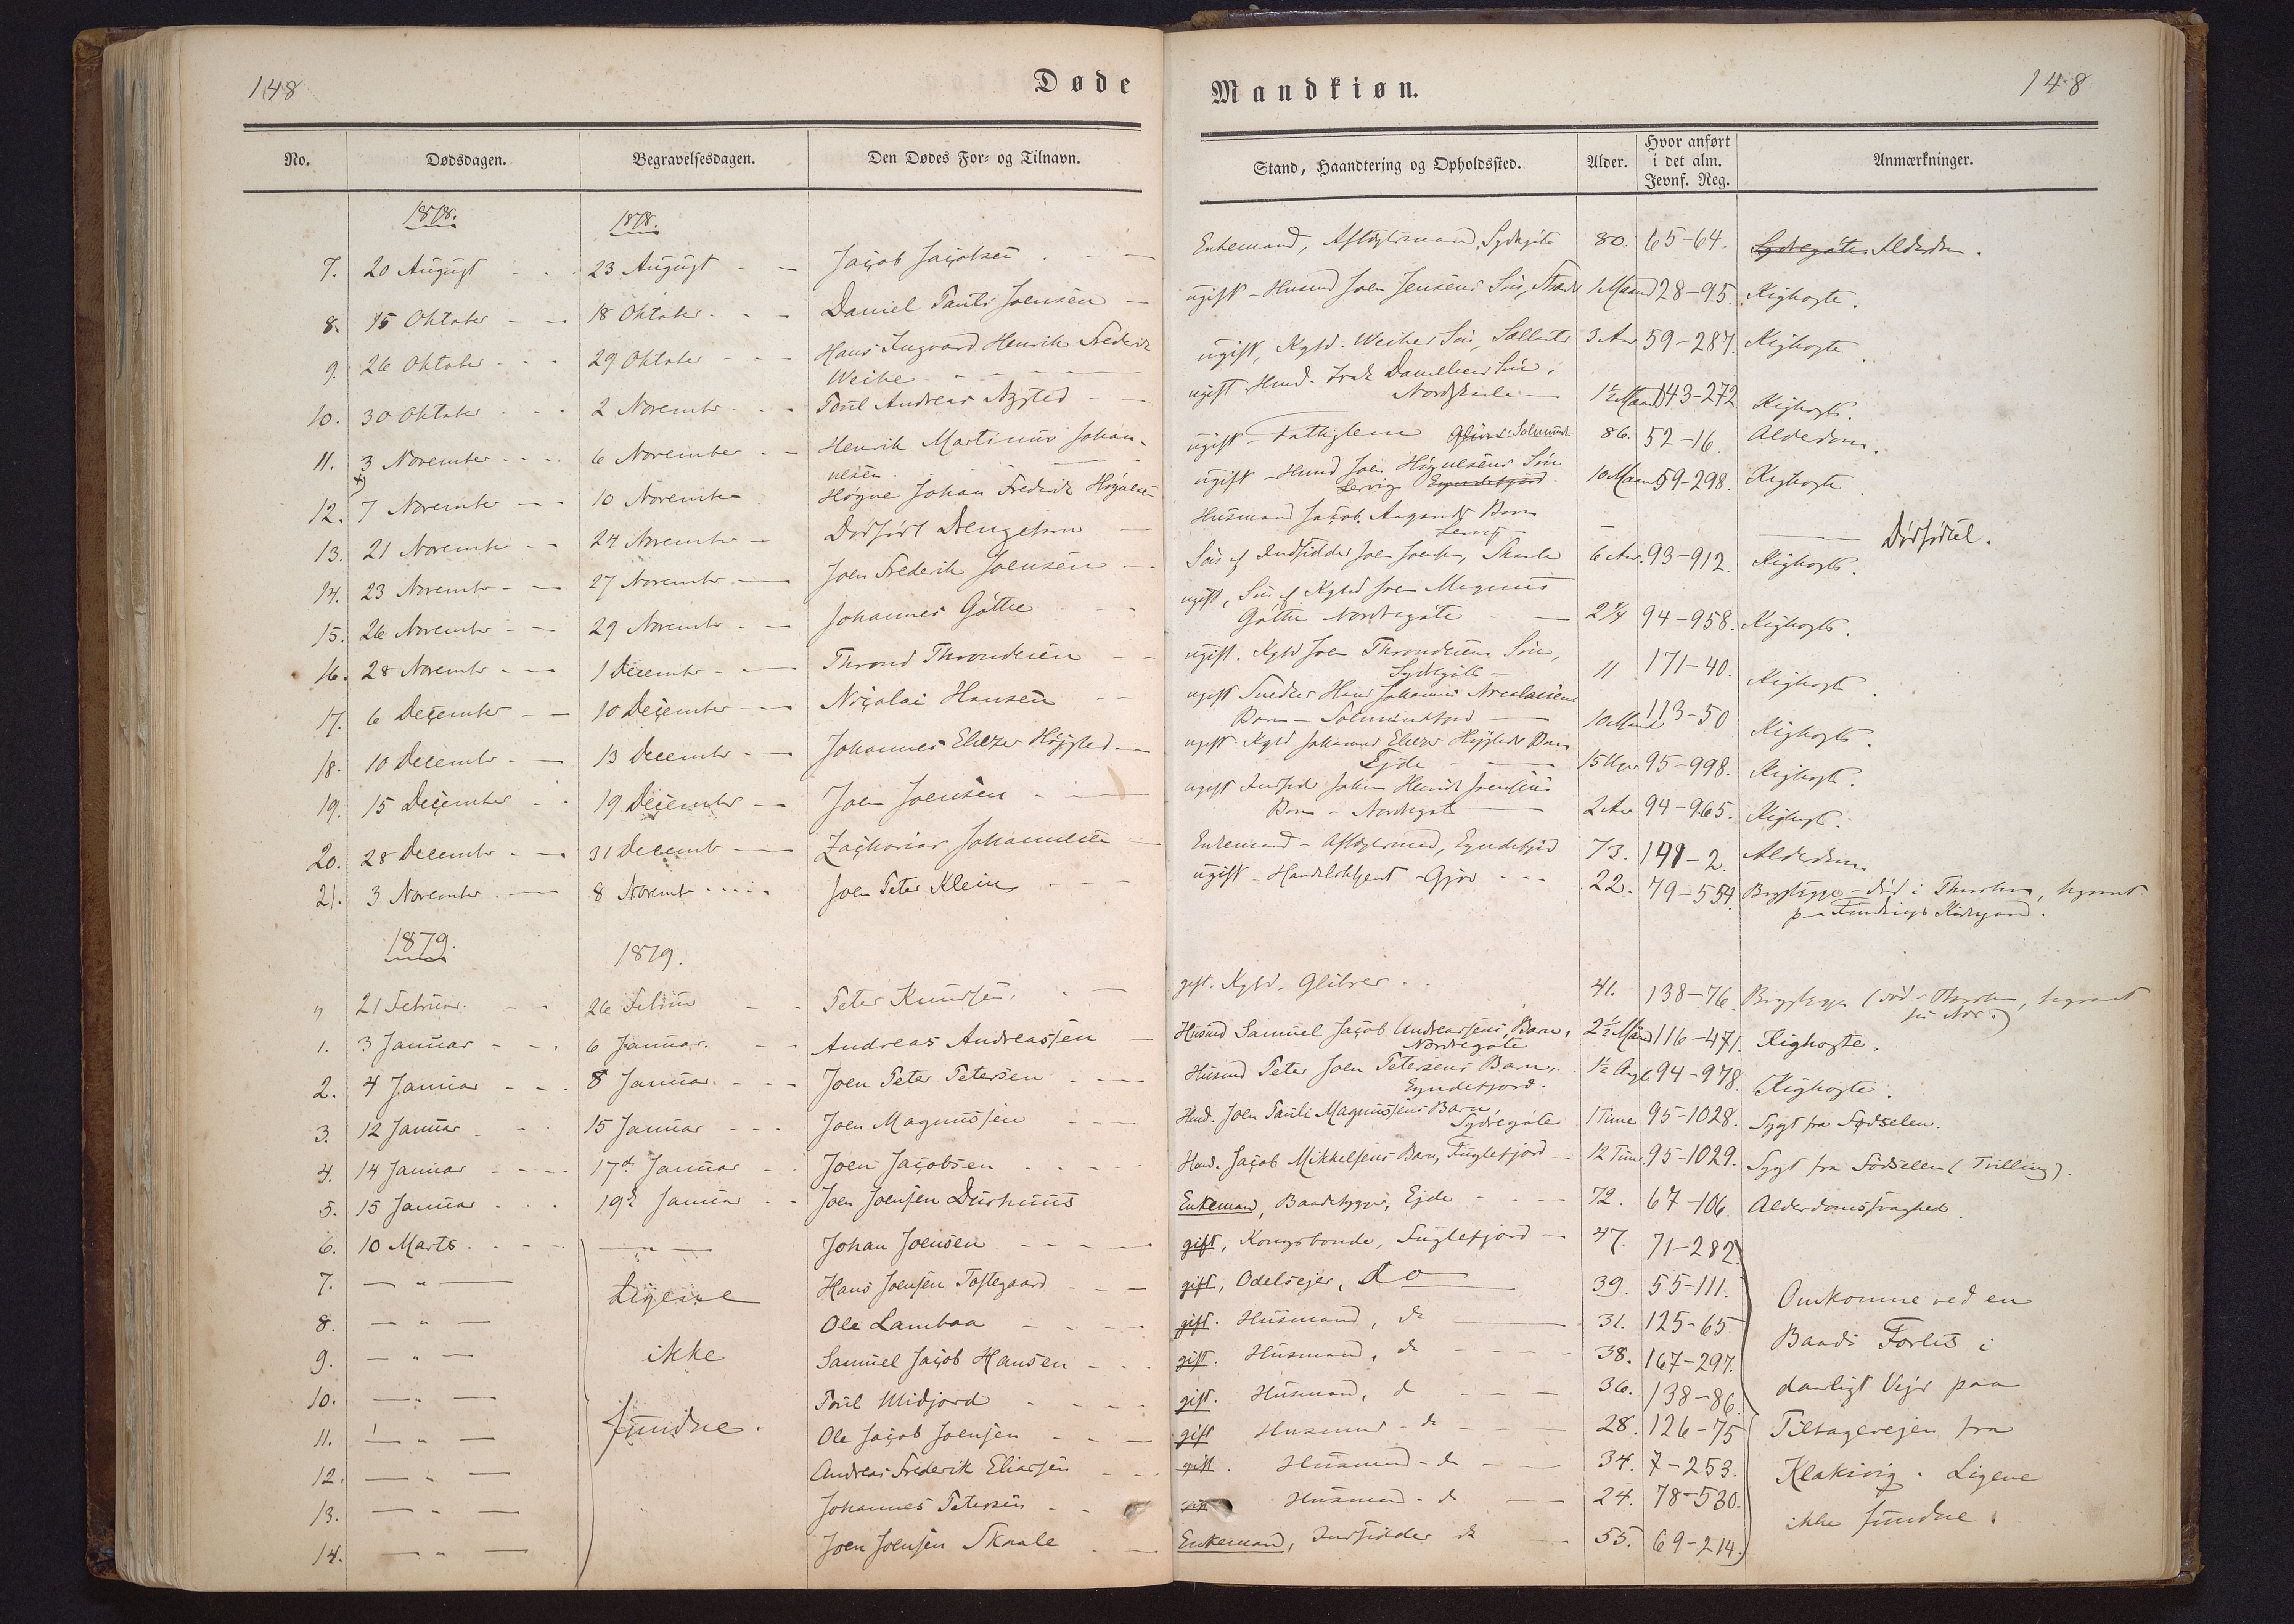 148
Døde
Mandkiøn.
148
No. Dødsdagen. Begravelsesdagen. Den Dødes For- og Tilnavn. Stand, Haandtering og Opholdssted. Alder. Hvor anført i det alm. Jevnf. Reg. Anmærkninger.
1878. 1878.
7. 20 August 23 August Jacob Jacobsen Enkemand, Aftægtsmand, Sydregöte 80. 65-64. Sydregöte Alderdom.
8. 15 Oktober 18 Oktober Daniel Pauli Joensen ugift - Husmd Joen Jensens Sön, 1 Maaned 28-95. Kighoste.
9. 26 Oktober 29 Oktober Hans Ingvard Henrik Frederik
Weihe ugift, Kgbd. Weihes Sön, 3 Aar 59-287. Kighoste.
10. 30 Oktober 2 November Poul Andreas ugift Husmd. Danielsens Sön,
Nordskaale 1½ Maaned 143-272 Kighoste.
11. 3 November 6 November Henrik Martinus Johan-
nesen. ugift - Fattiglem 86. 52-16. Alderdom.
12. 7 November 10 November Høgne Johan Frederik Høgnesen ugift - Husmd Joen Høgnesens Sön
Lervig 10 Maaned 59-298. Kighoste.
13. 21 November 24 November Dødfødt Drengebarn Husmand Jacob Barn
Dødfödt.
14. 23 November 27 November Joen Frederik Joensen Sön af Indsidder Joen Joensen, Skaale 6 Aar. 93-912. Kighoste.
15. 26 November 29 November Johannes Göthe ugift, Sön af Kgbd Joen Magnus
Göthe Nordregöte 2¼ 94-958. Kighoste.
16. 28 November 1 December Thrond Throndsen ugift. Kgbd Joen Throndsens Sön,
Sydregöte 11 171-40. Kighoste.
17. 6 December 10 December Nicolai Hansen ugift Snedker Hans Johannes Nicolaisens
Barn - 10 Maaned 113-50 Kighoste.
18. 10 December 13 December Johannes Eliezer Højgsted ugift Kgbd Johannes Eliezer Højgsteds Barn
Ejde 15 Uger 95-998. Kighoste.
19. 15 December 19 December Joen Joensen ugift Indsidder Johan Henrik Joensens
Barn - Nordregöte 2 Aar 94-965. Kighoste.
20. 28 December 31 December Zacharias Johannesen Enkemand - Aftægtsmand, Eyndefjord 73. 191-2. Alderdom.
21. 3 November 8 November Joen Peter Klein ugift - Handelsbetjent - Gjov 22. 79-554. Brystsyge - död i Thorshavn, begravet
paa Kirkegaard.
1879. 1879.
" 21 Februar. 26 Februar Peter Knudsen, gift. Kgbd. Glibrer 41. 138-76. Brystsyge (död i Thorshavn, begravet
1. 3 Januar 6 Januar. Andreas Andreassen Husmd Samuel Jacob Andreassens Barn,
Nordregöte 2½ Maaned 116-471. Kighoste.
2. 4 Januar 8 Januar. Joen Peter Petersen Husmd Peter Joen Petersens Barn,
Eyndefjord. 1½ 94-978. Kighoste.
3. 12 Januar 15 Januar Joen Magnussen Husmd. Joen Pauli Magnussens Barn,
Sydregöte 1 Time 95-1028. Sygt fra Fødselen.
4. 14 Januar 17de Januar Joen Jacobsen Husmd. Jacob Mikkelsens Barn, Fuglefjord 12 Timer. 95-1029. Sygt fra Födselen (Tvilling).
5. 15 Januar 19de Januar Joen Joensen Durhuus Enkemand, Baadebygger, Ejde 72. 67-106. Alderdomssvaghed.
6. 10 Marts. — " — Johan Joensen gift, Kongsbonde, Fuglefjord 47. 71-282.
7. — " — Hans Joensen Toftegaard gift, Odelsejer, do 39. 55-111.
8. — " — Ole Lambaa gift. Husmand, do 31. 125-65
9. — " — Samuel Jacob Hansen gift. Husmand, do 38. 167-297.
10. — " — Poul Midjord gift. Husmand, do 36. 138-86.
11. — " — Ole Jacob Joensen gift Husmand - do 28. 126-75
12. — " — Andreas Frederik Eliassen gift. Husmand - do 34. 7-253.
13. — " — Johannes Petersen gift Husmand - do 24. 78-530.
14. — " — Joen Joensen Skaale Enkemand, Indsidder do 55. 69-214.
Ligene
ikke
fundne.
Omkomne ved en
Baads Forlis i
daarligt Vejr paa
Tilbagevejen fra
Klaksvig. Ligene
ikke fundne.